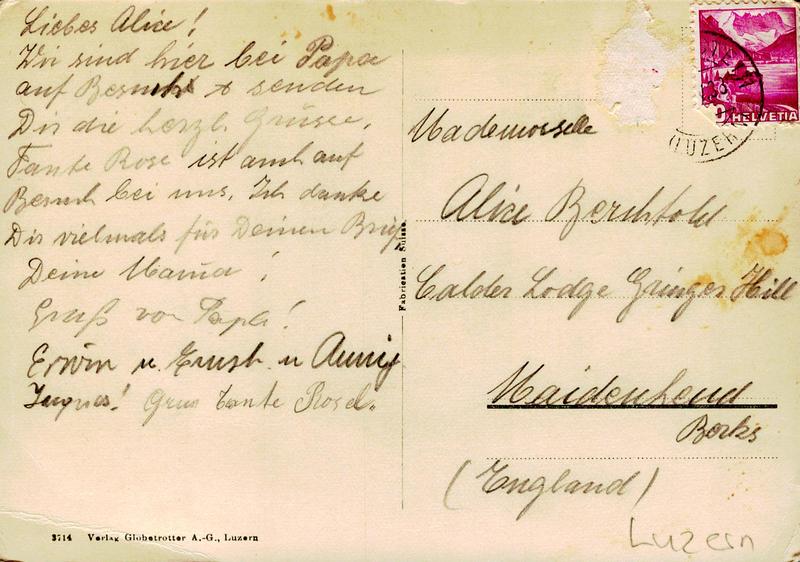 Liebes Alice!
Wir sind hier bei Papa
auf Besuch & senden
Dir die herzl. Grüsse,
Tante Rose ist auch auf
Besuch bei uns. Ich danke
Dir vielmals für Deinen Brief
Deine Mama!
Gruß von Papa!
Erwin u. Ernst. u Anny
Gruss Tante Rosel.
3714 Verlag Globetrotter A.-G., Luzern
Fabrication Suisse
HELVETIA
LUZERN
Mademoiselle
Alice Berchtold
Calder Lodge Gringer Hill
Maidenhead
Berks
(England)
Luzern